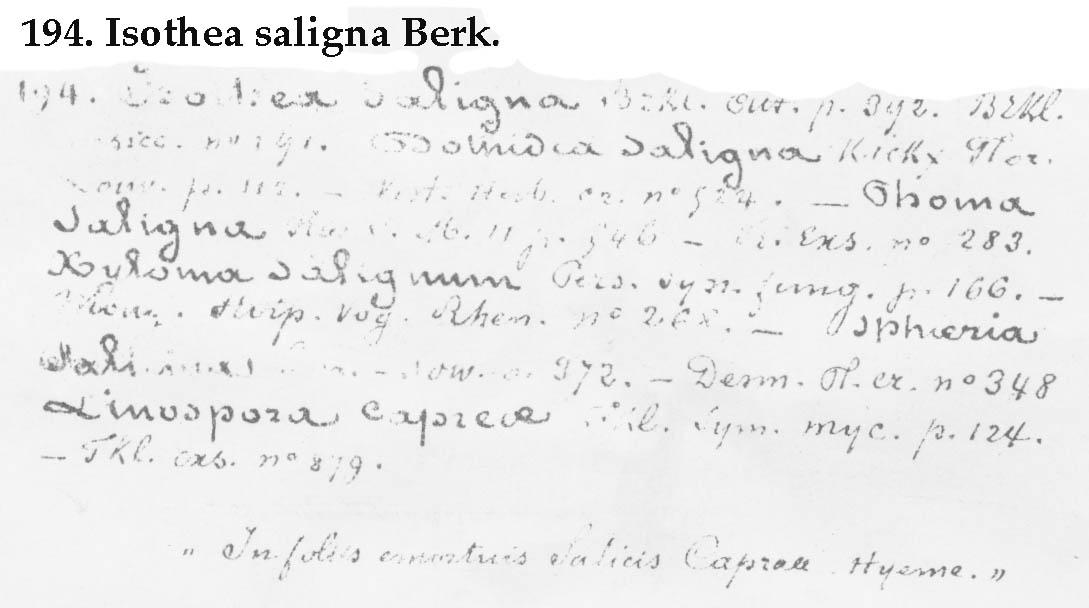 194. Isothea saligna Berk.
194. Isothea Saligna Brkl. Out. p. 392. Brkl.
nº 191. Dothidea Saligna Kickx Flor.
Louv. p. 112. — West. Herb. cr. nº 524. — Phoma
Saligna p. 546 — Fr. Exs. nº 283.
Xyloma Salignum Pers. syn. fung. p. 166. —
Moug. Stirp. Vog. Rhen. nº 268. — Sphæria
372. — Desm. Pl. cr. nº 348
Linospora Capreæ Fkl. Sym. myc. p. 124.
— Fkl. exs. nº 879.
" In foliis emortuis Salicis Capreæ. Hyeme. "